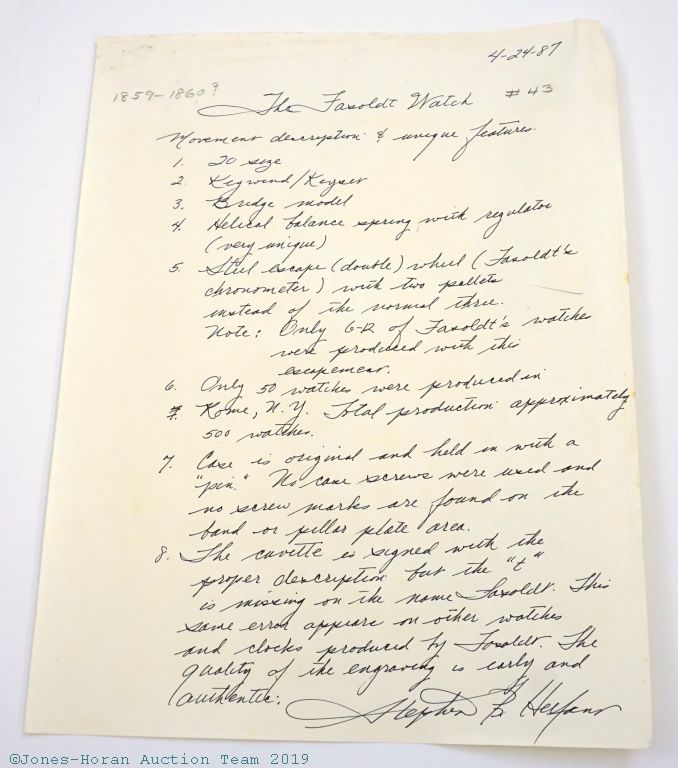 4-24-87
1859-1860?
The Fasoldt Watch #43
Movement description & unique features.
1. 20 size
2. Keywind/Keyset
3. Bridge model
4. Helical balance spring with regulator
(very unique)
5. Steel escape (double) wheel (Fasoldt's
chronometer) with two pallets
instead of the normal three.
Note: Only of Fasoldt's watches
were produced with this
escapement.
6. Only 50 watches were produced in
Rome, N.Y. Total production approximately
500 watches.
7. Case is original and held in with a
"pin." No case screws were used and
no screw marks are found on the
band or pillar plate area.
8. The cuvette is signed with the
proper description but the "t"
is missing on the name Fasoldt. This
same error appears on other watches
and clocks produced by Fasoldt. The
quality of the engraving is early and
authentic.
Stephen
©Jones-Horan Auction Team 2019